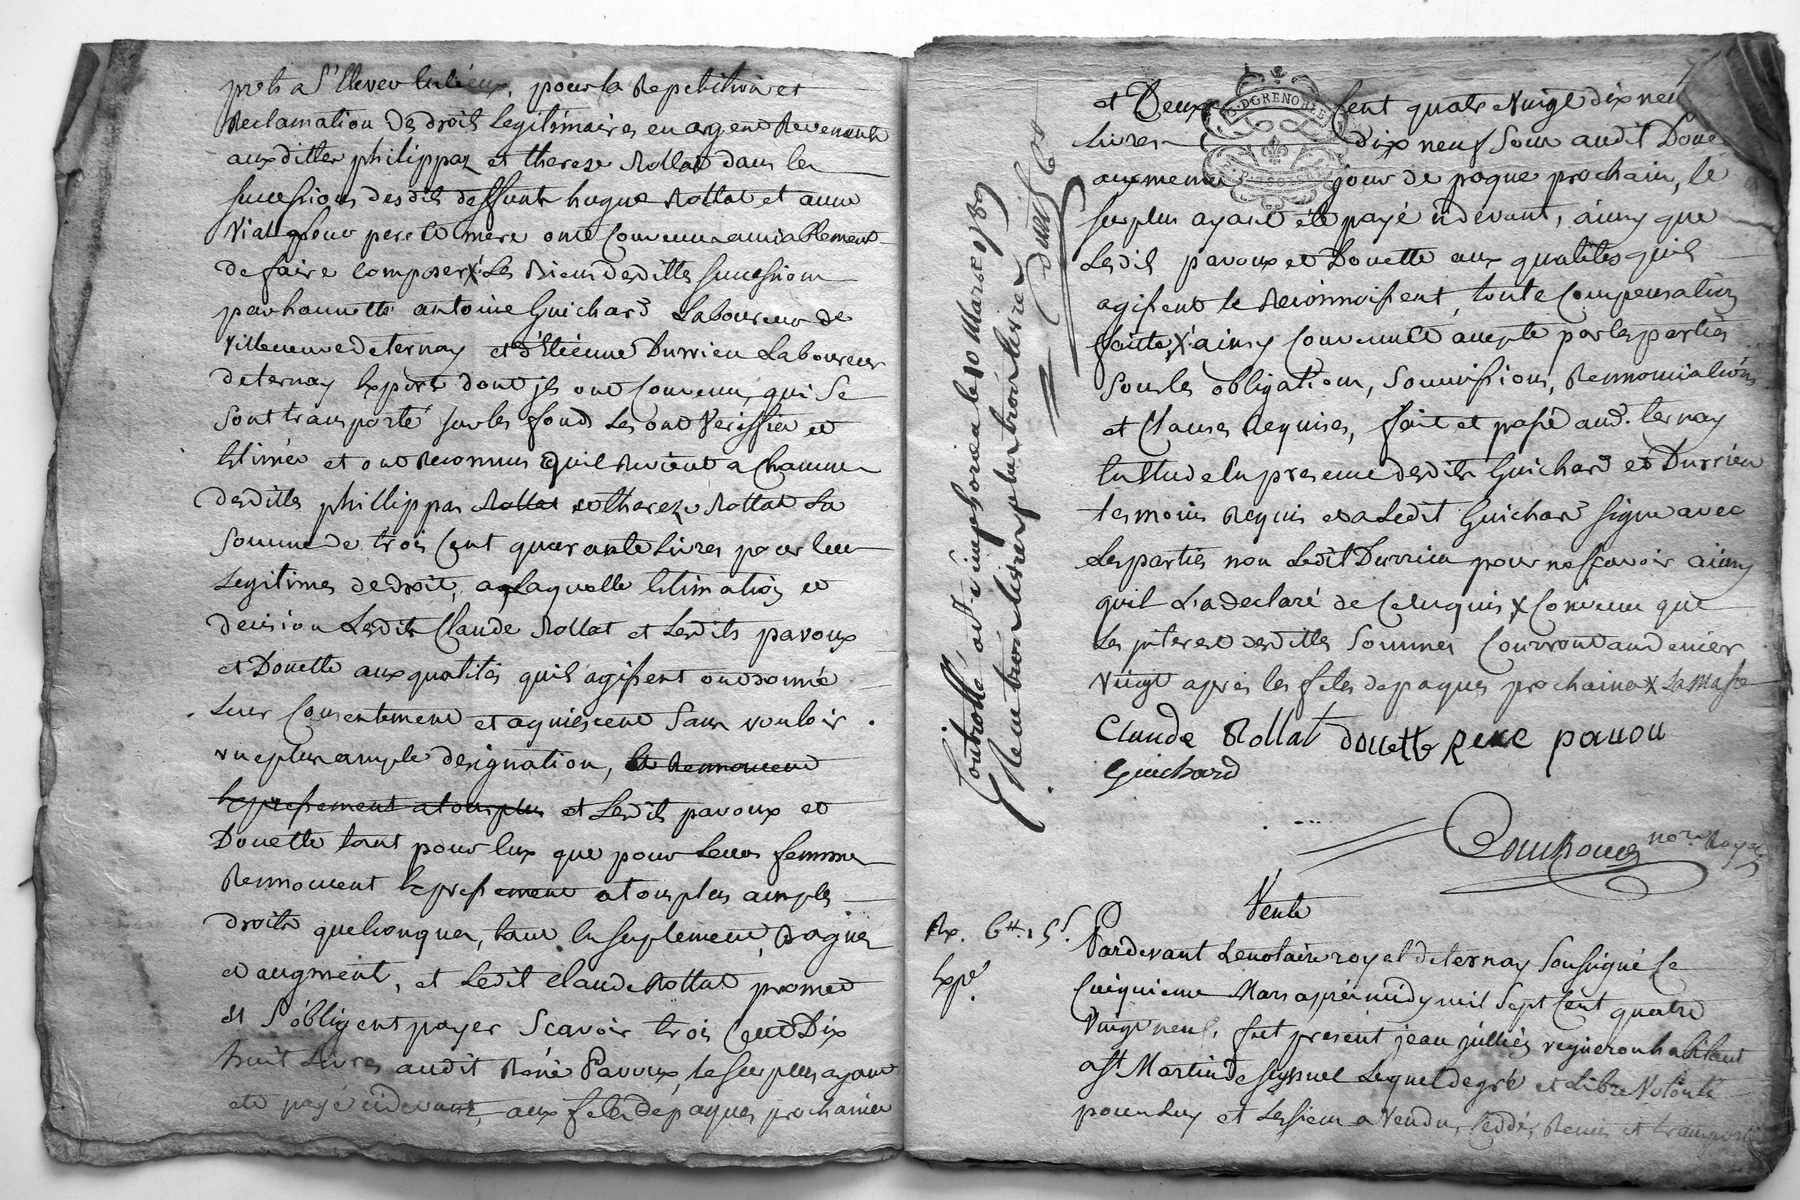 prets a s'elever entreux, pour la Repetition et
Reclamation des droits Legitimaires en argent Revenants
auxdittes philippaz et therese Rollat dans les
successions desdits deffunts hugue Rollat et anne
Vial leur pere et mere ont Convenu amiablement
de faire Composer Les Biens desdittes successions
par honnette antoine Guichard Laboureur de
Villeneuve de ternay et d'Etienne Durrieu Laboureur
de ternay Experts dont jls ont Convenu, qui se
sont transporté sur les fonds Les ont Veriffiée et
Estimée et ont Reconnus quil Revient a Chacune
desdittes phillippaz Rollat et therese Rollat La
somme de trois Cent quarante Livres pour leur
Legitimes de droit, a Laquelle Estimation et
decision Lesdits Claude Rollat et Lesdits pavoux
et Douette aux qualités quil agissent ont donné
Leur Consentement et aquiescent sans vouloir
une plus ample designation, et Renoncent
Expressement a tous plus et Lesdits pavoux et
Douette tant pour Eux que pour Leurs femmes
Renoncent Expressement a tous plus amples
droits quelconques, tant En suplement, dagnes
et augment, et Ledit Claude Rollat promet
et s'obligent payer Scavoir trois Cent Dix
huit Livres audit Réné Pavoux, le surplus ayant
eté payé cidevant, aux fetes de paques prochaines
et Deux Cent quatre Vingt dix neuf
D. GRENOBLE
Livres dix neuf Sous audit Douette
aux memes jour de paque prochain, le
surplus ayant été payé cidevant, ainsy que
Lesdits pavoux et Douette aux qualités quils
agissent le Reconnoissent, toute Compensation
faitte, ainsy Convenu et accepté par les parties
sous les obligations, soumissions, Renonciations
et Clauses Requises, fait et passé aud. ternay
Estude En presence desdits Guichard et Durrieu
temoins Requis et a Ledit Guichard signé avec
Les parties non Ledit Durrieu pour ne scavoir ainsy
quil L'a declaré de Ce Enquis Convenu que
Les jnterets desdittes Sommes Courront au denier
Vingt apres les fetes de paques prochaines La masse
Claude Rollat douette Rene pavou
Guichard
nore. Royal
Controllé a st simphorien le 10 Mars 1789
Reçu trois Livres
Vente
Rx. 6tt. 15s.
Expé
Pardevant Le notaire royal de ternay Soussigné Le
Cinquieme Mars après midy mil Sept Cent quatre
Vingt neuf, fut present jean jullien vigneron habitant
a St Martin de Seyssuel Lequel de gré et Libre Volonté
pour Luy et Les siens a Vendu, Ceddé, Remis et transporté